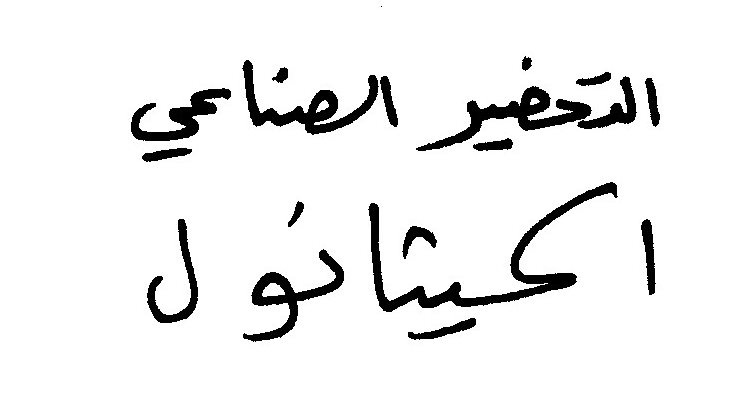 التحضير الصناعي
اكيثانول